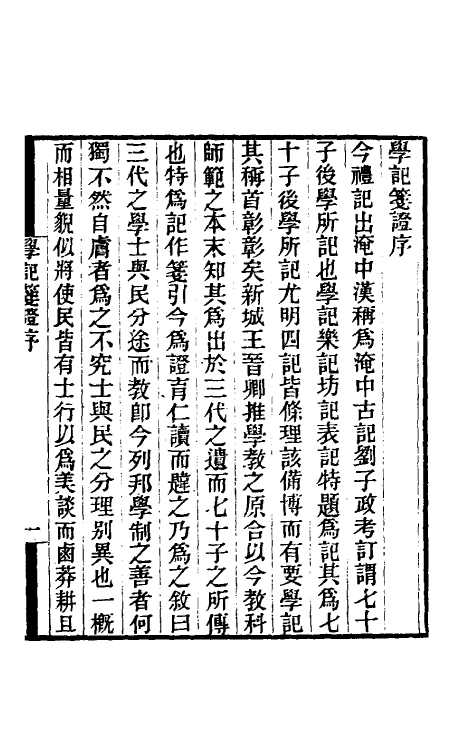 學記箋證序
今禮記出淹中漢稱爲淹中古記劉子政考訂謂七十
子後學所記也學記樂記坊記表記特題爲記其爲七
十子後學所記尤明四記皆條理該備博而有要學記
其稱首彰彰矣新城王晉卿推學教之原合以今教科
師範之本末知其爲出於三代之遺而七十子之所傳
也特爲記作箋引今爲證育仁讀而韙之乃爲之敘曰
三代之學士與民分途而教卽今列邦學制之善者何
獨不然自膚者爲之不究士與民之分理別異也一概
而相量貌似將使民皆有士行以爲美談而鹵莽耕且
學記箋證序
一